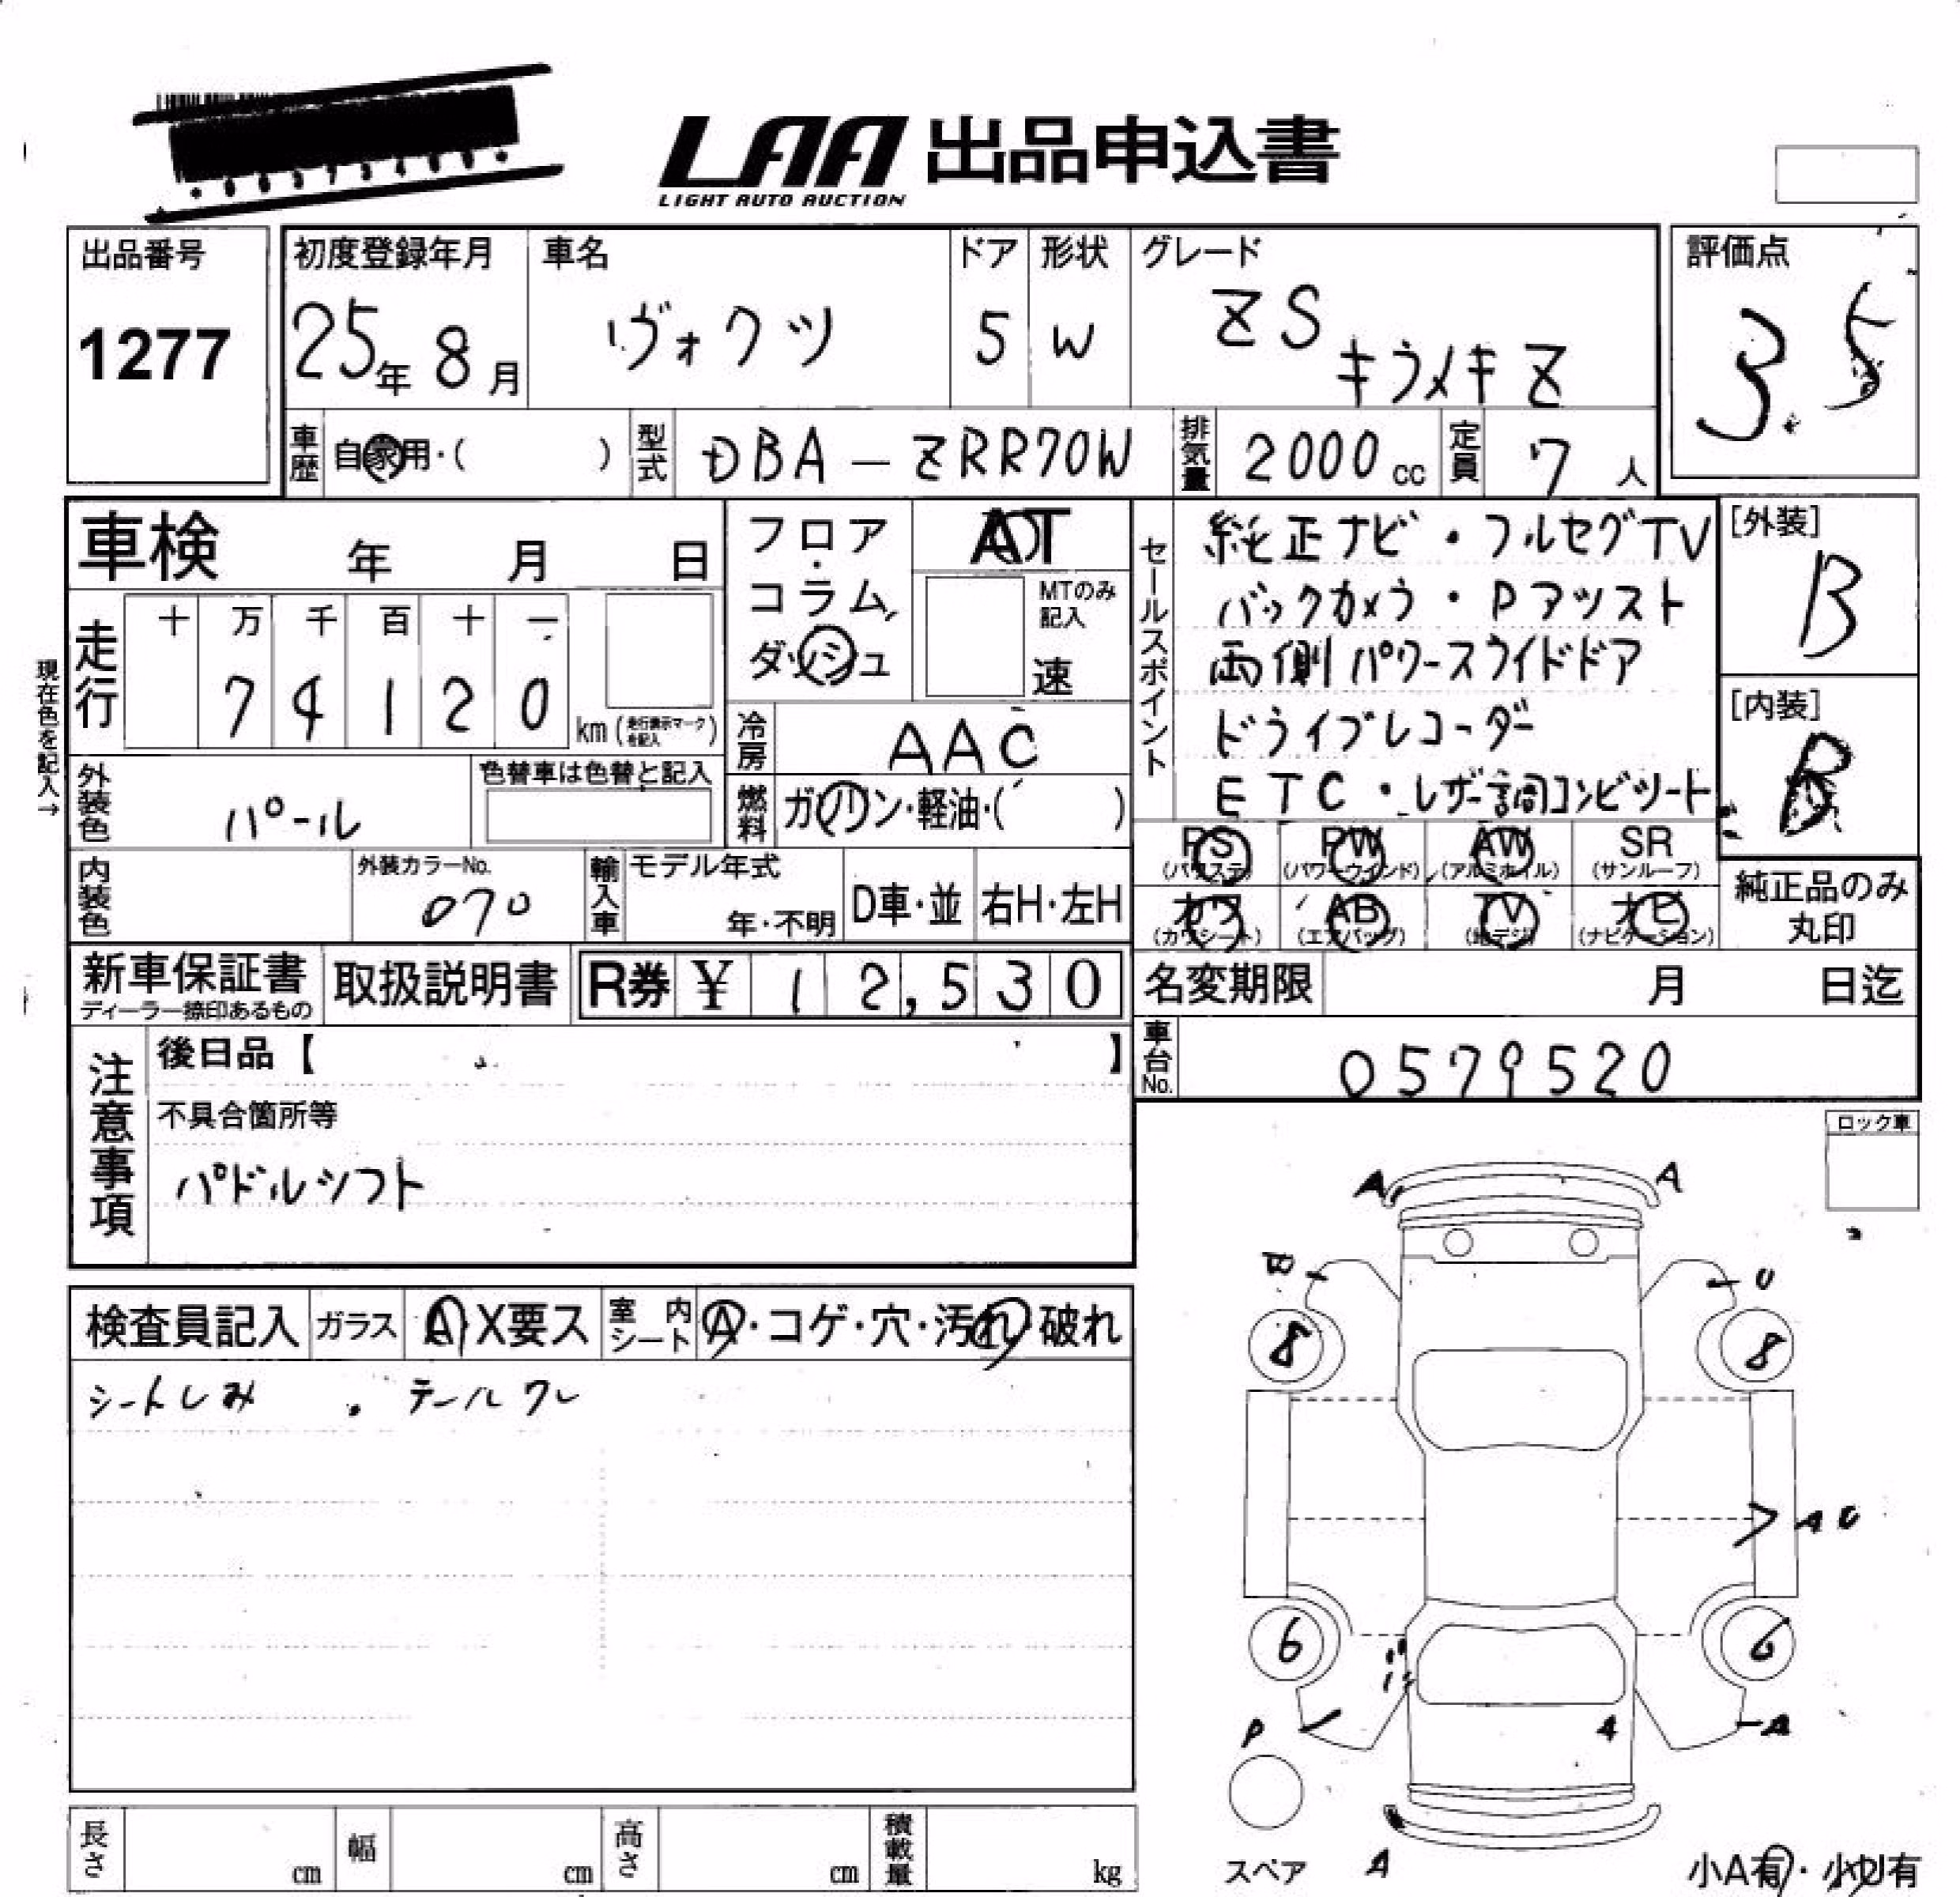 LAA 出品申込書
LIGHT AUTO AUCTION
出品番号
1277
初度登録年月
25年 8月
車名
ヴォクシー
ドア
5
形状
W
グレード
ZS
キラメキZ
評価点
3.5
車歴 自家用・( )
型式 DBA-ZRR70W
排気量 2000cc
定員 7人
車検 年 月 日
フロア・コラム・ダッシュ
AT
MTのみ記入
速
セールスポイント
純正ナビ・フルセグTV
バックカメラ・Pアシスト
両側パワースライドドア
ドライブレコーダー
ETC・レザー調コンビシート
[外装]
B
[内装]
B
現在色を記入→
走行
十 万 千 百 十 一
7 4 1 2 0 km (走行表示マークを記入)
冷房 AAC
外装色 パール
色替車は色替と記入
燃料 ガソリン・軽油・( )
PS (パワステ) PW (パワーウインド) AW (アルミホイル) SR (サンルーフ)
カワ (カワシート) AB (エアバッグ) TV (地デジ) ナビ (ナビゲーション)
純正品のみ丸印
内装色
外装カラーNo.
070
輸入車
モデル年式
年・不明
D車・並
右H・左H
新車保証書
ディーラー捺印あるもの
取扱説明書
R券 ¥ 12,530
名変期限 月 日迄
車台No. 0579520
注意事項
後日品【 】
不具合箇所等
パドルシフト
ロック車
検査員記入 ガラス A・X要ス 室内シート A・コゲ・穴・汚れ・破れ
シートしみ . テールワレ
A A
U
8 8
A U
6 6
P A A
A
スペア
小A有・小U有
長さ cm 幅 cm 高さ cm 積載量 kg